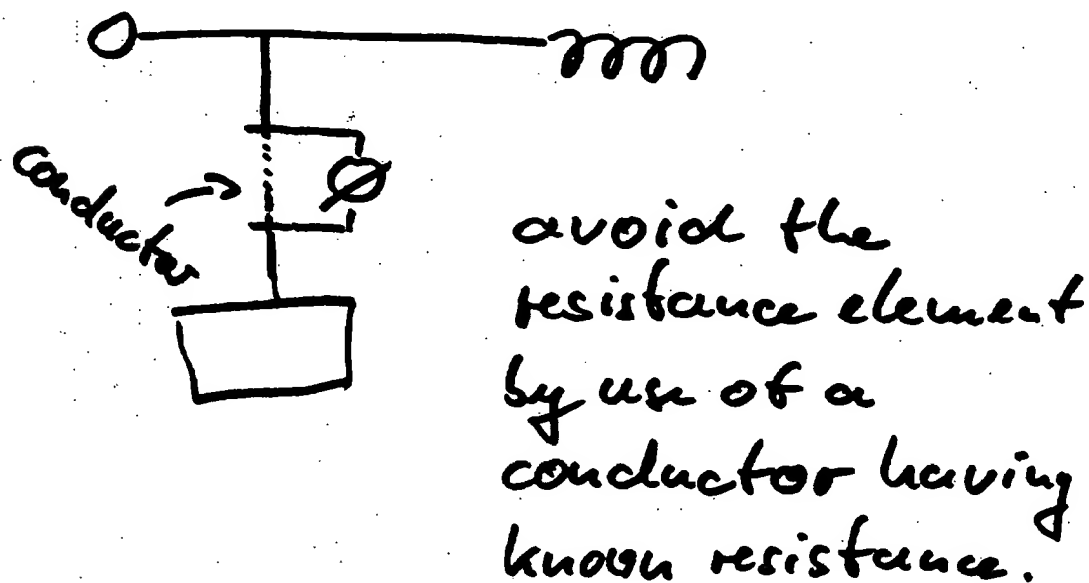 conductor
avoid the
resistance element
by use of a
conductor having
known resistance.